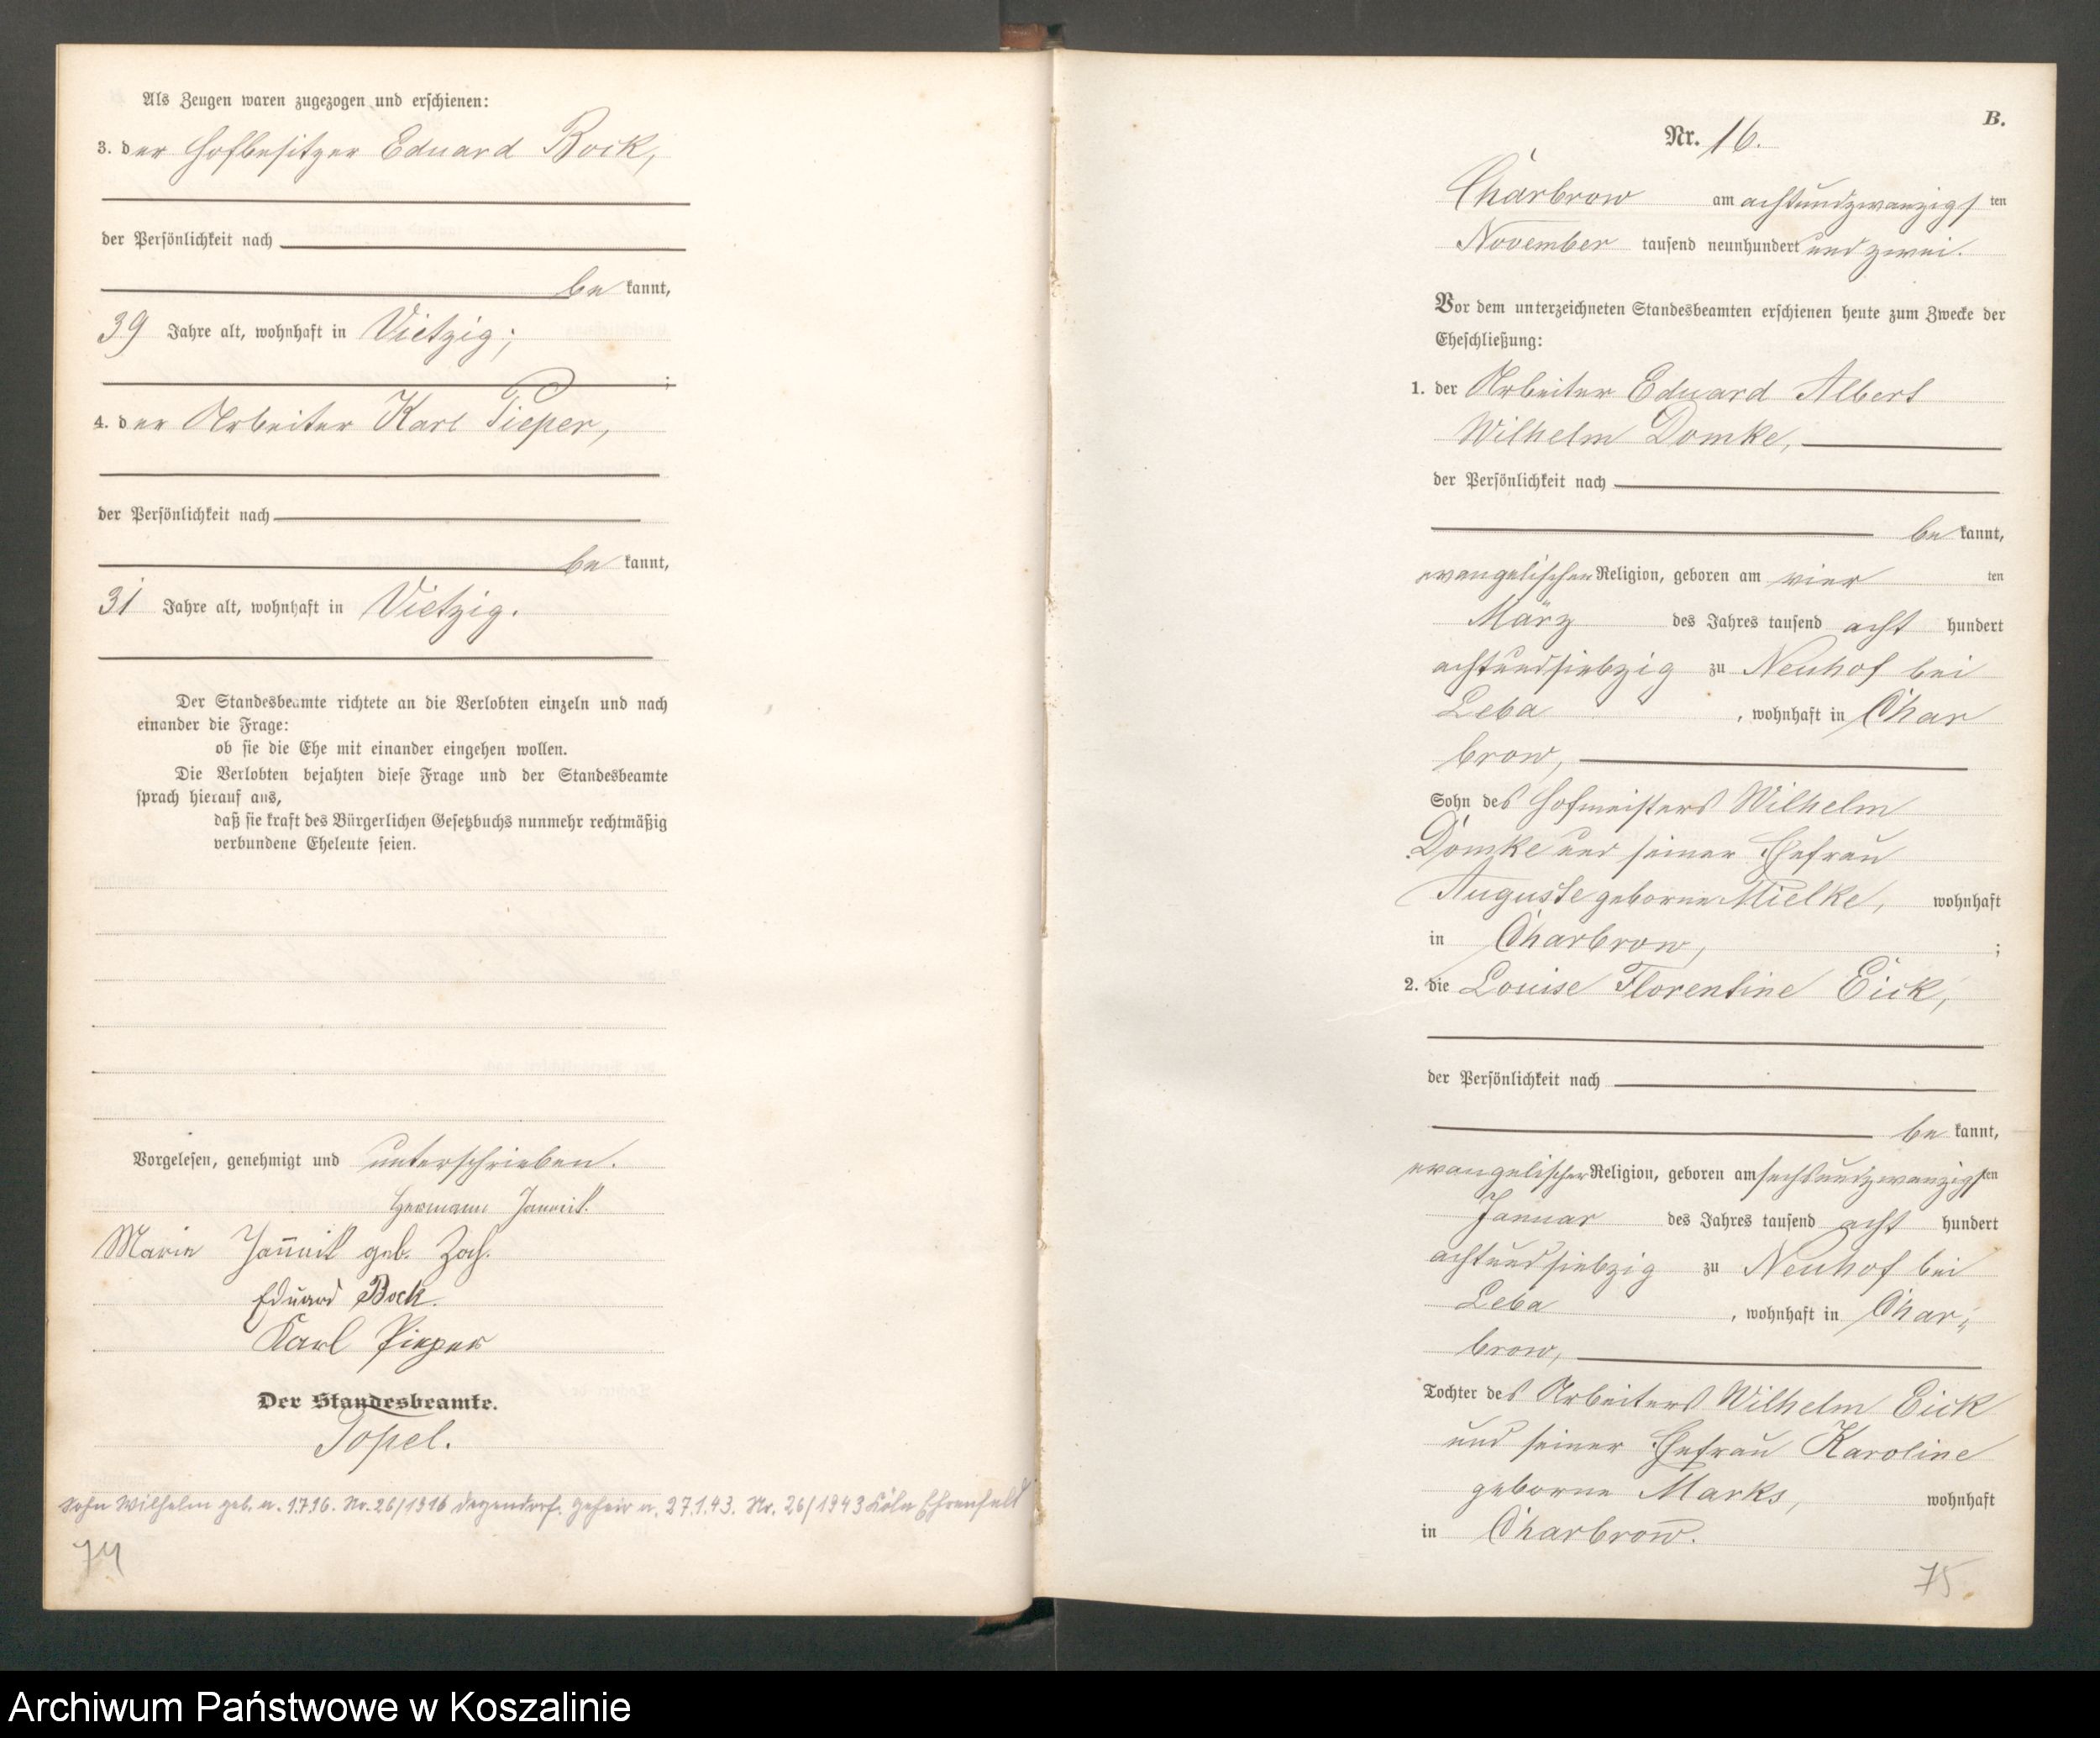 Als Zeugen waren zugezogen und erschienen:
3. der Hofbesitzer Eduard Bock,
der Persönlichkeit nach
be kannt,
39 Jahre alt, wohnhaft in Vietzig;
;
4. der Arbeiter Karl Pieper,
der Persönlichkeit nach
be kannt,
31 Jahre alt, wohnhaft in Vietzig.
Der Standesbeamte richtete an die Verlobten einzeln und nach
einander die Frage:
ob sie die Ehe mit einander eingehen wollen.
Die Verlobten bejahten diese Frage und der Standesbeamte
sprach hierauf aus,
daß sie kraft des Bürgerlichen Gesetzbuchs nunmehr rechtmäßig
verbundene Eheleute seien.
Vorgelesen, genehmigt und unterschrieben.
Hermann Jannik.
Marie Jannik geb. Zoch.
Eduard Bock.
Karl Pieper
Der Standesbeamte.
Topel.
Sohn Wilhelm geb. a. 1.7.16. Nr. 26/1916 Degendorf. Geheir a. 27.1.43. Nr. 26/1943 Köln Ehrenfeld
74
B.
Nr. 16.
Charbrow am achtundzwanzigs ten
November tausend neunhundert und zwei.
Vor dem unterzeichneten Standesbeamten erschienen heute zum Zwecke der
Eheschließung:
1. der Arbeiter Eduard Albert
Wilhelm Domke,
der Persönlichkeit nach
be kannt,
evangelischer Religion, geboren am vier ten
März des Jahres tausend acht hundert
achtundsiebzig zu Neuhof bei
Leba , wohnhaft in Char
brow,
Sohn des Hofmeisters Wilhelm
Domke und seiner Ehefrau
Auguste geborne Mielke, wohnhaft
in Charbrow, ;
2. die Louise Florentine Eick,
der Persönlichkeit nach
be kannt,
evangelischer Religion, geboren am sechsundzwanzigs ten
Januar des Jahres tausend acht hundert
achtundsiebzig zu Neuhof bei
Leba , wohnhaft in Char-
brow,
Tochter des Arbeiters Wilhelm Eick
und seiner Ehefrau Karoline
geborne Marks, wohnhaft
in Charbrow.
75
Archiwum Państwowe w Koszalinie